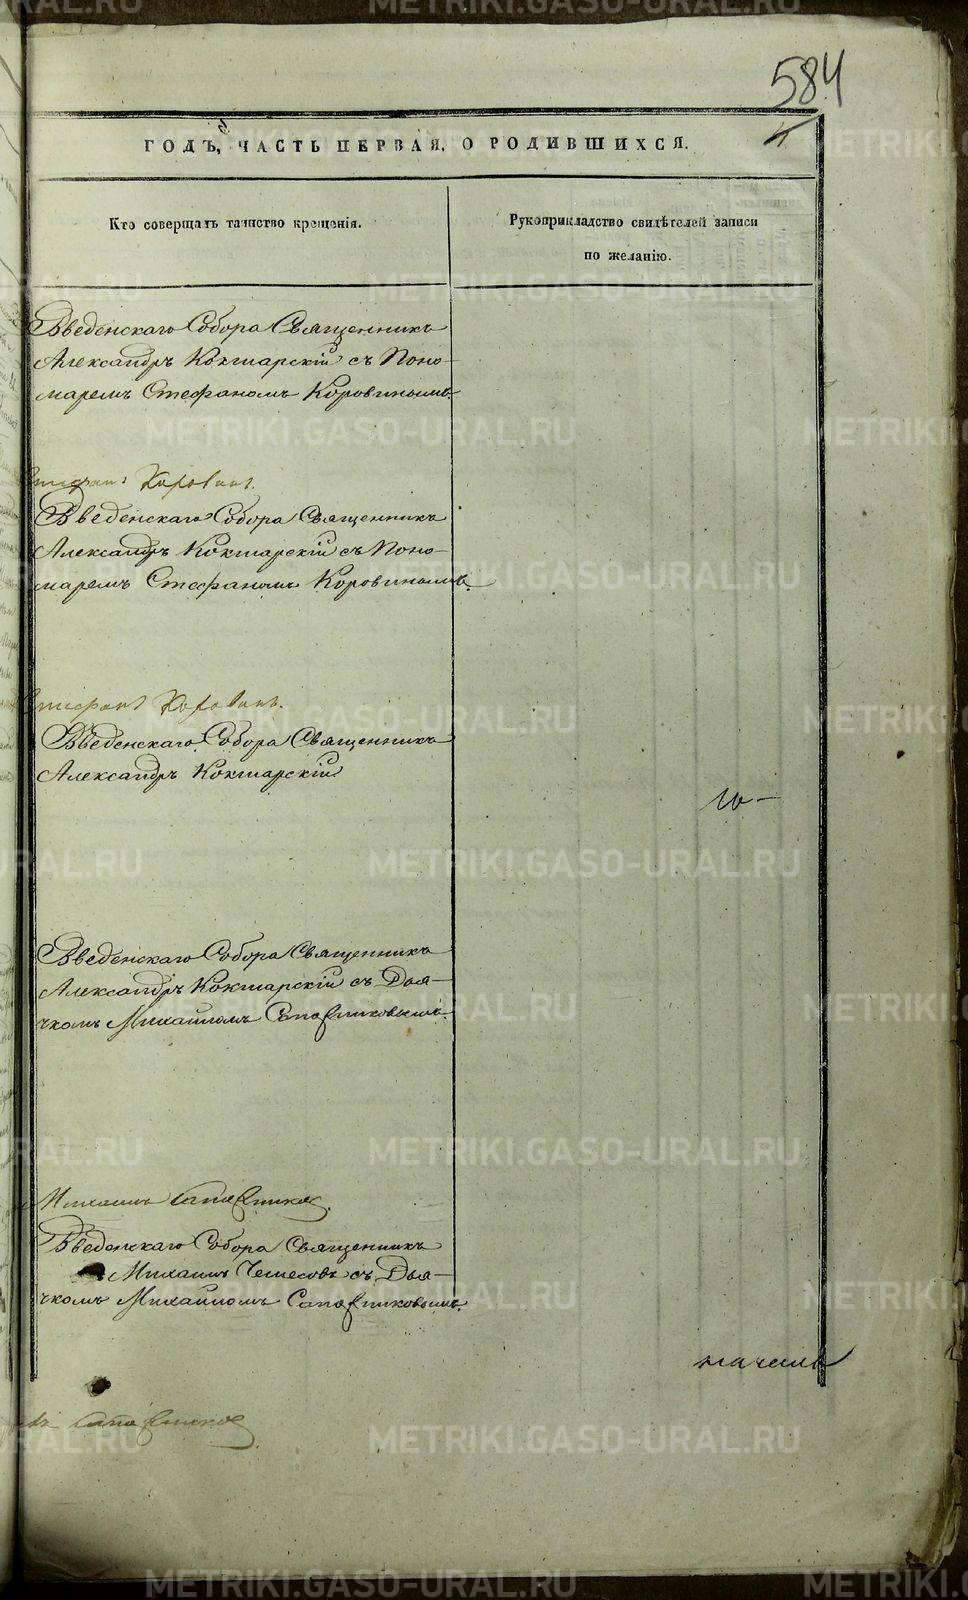 584
4
ГОДЪ, ЧАСТЬ ПЕРВАЯ, О РОДИВШИХСЯ.
Кто совершалъ таинство крещенія.
Рукоприкладство свидѣтелей записи
по желанію.
Введенскаго Собора Священникъ
Александръ Кокшарскій съ Поно-
маремъ Стефаномъ Коровинымъ.
Стефанъ Коровинъ.
Введенскаго Собора Священникъ
Александръ Кокшарскій съ Поно-
маремъ Стефаномъ Коровинымъ.
Стефанъ Коровинъ.
Введенскаго Собора Священникъ
Александръ Кокшарскій
Введенскаго Собора Священникъ
Александръ Кокшарскій съ Дья-
чкомъ Михаиломъ Сапожниковымъ.
Михаилъ Сапожников
Введенскаго Собора Священникъ
Михаилъ съ Дья-
чкомъ Михаиломъ Сапожниковымъ.
Сапожников
METRIKI.GASO-URAL.RU